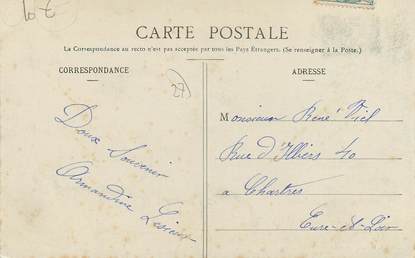 10 €
CARTE POSTALE
La Correspondance au recto n'est pas acceptée par tous les Pays Étrangers. (Se renseigner à la Poste.)
CORRESPONDANCE
27
Doux Souvenir
Amandine
ADRESSE
Monsieur René Viel
Rue d'Illiers 40
a Chartres
Eure-et-Loir